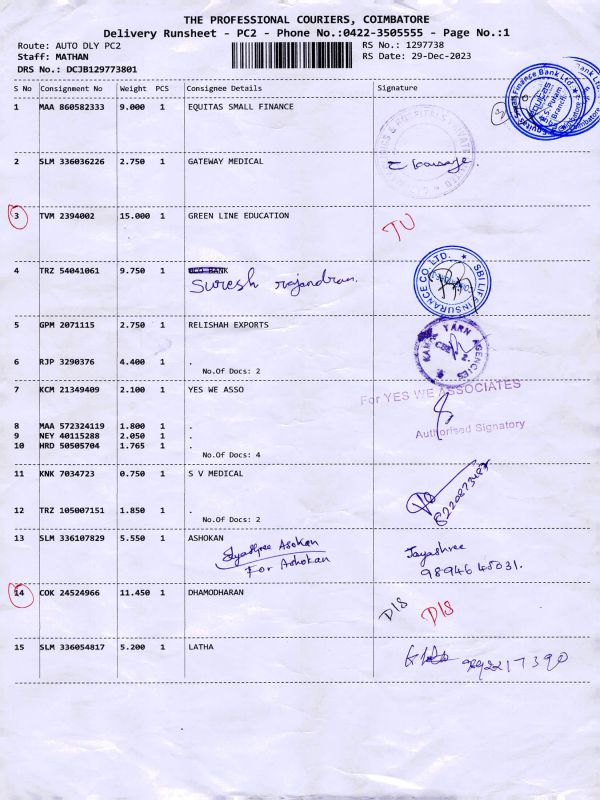 THE PROFESSIONAL COURIERS, COIMBATORE
Delivery Runsheet - PC2 - Phone No.:0422-3505555 - Page No.:1
Route: AUTO DLY PC2 RS No.: 1297738
Staff: MATHAN RS Date: 29-Dec-2023
DRS No.: DCJB129773801
S No Consignment No Weight PCS Consignee Details Signature
1 MAA 860582333 9.000 1 EQUITAS SMALL FINANCE
Equitas Small Finance Bank Ltd.
2 SLM 336036226 2.750 1 GATEWAY MEDICAL
3 TVM 2394002 15.000 1 GREEN LINE EDUCATION
TU
4 TRZ 54041061 9.750 1 UCO BANK
Suresh rajandran.
SBI LIFE INSURANCE CO. LTD.
5 GPM 2071115 2.750 1 RELISHAH EXPORTS
YARN AGENCIES
6 RJP 3290376 4.400 1 .
No.Of Docs: 2
7 KCM 21349409 2.100 1 YES WE ASSO
For YES WE ASSOCIATES
8 MAA 572324119 1.800 1 .
9 NEY 40115288 2.050 1 .
Authorised Signatory
10 HRD 50505704 1.765 1 .
No.Of Docs: 4
11 KNK 7034723 0.750 1 S V MEDICAL
12 TRZ 105007151 1.850 1 .
No.Of Docs: 2
13 SLM 336107829 5.550 1 ASHOKAN
Jayashree Asokan
For Ashokan
Jayashree
98946 45031.
14 COK 24524966 11.450 1 DHAMODHARAN
D/S D/S
15 SLM 336054817 5.200 1 LATHA